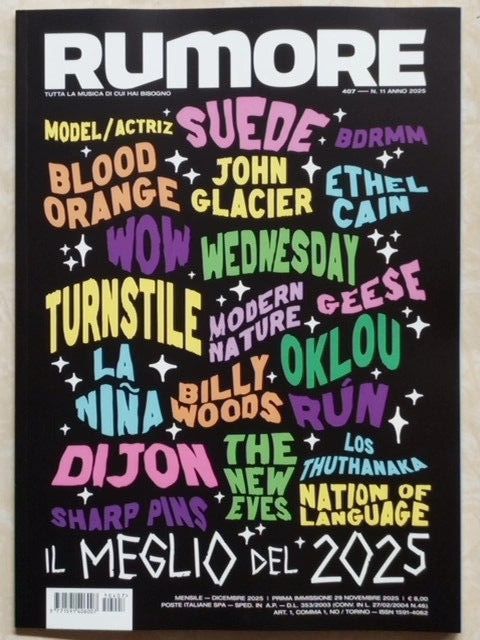 RUMORE
TUTTA LA MUSICA DI CUI HAI BISOGNO
407 — N. 11 ANNO 2025
MODEL/ACTRIZ
SUEDE
BDRMM
BLOOD
ORANGE
JOHN
GLACIER
ETHEL
CAIN
WOW
WEDNESDAY
TURNSTILE
MODERN
NATURE
GEESE
LA
NIÑA
BILLY
WOODS
OKLOU
RÚN
DIJON
THE
NEW
EYES
LOS
THUTHANAKA
SHARP PINS
NATION OF
LANGUAGE
IL MEGLIO DEL 2025
MENSILE — DICEMBRE 2025 | PRIMA IMMISSIONE 29 NOVEMBRE 2025 | € 8,00
POSTE ITALIANE SPA — SPED. IN A.P. — D.L. 353/2003 (CONV. IN L. 27/02/2004 N.46)
ART. 1, COMMA 1, NO / TORINO — ISSN 1591-4062